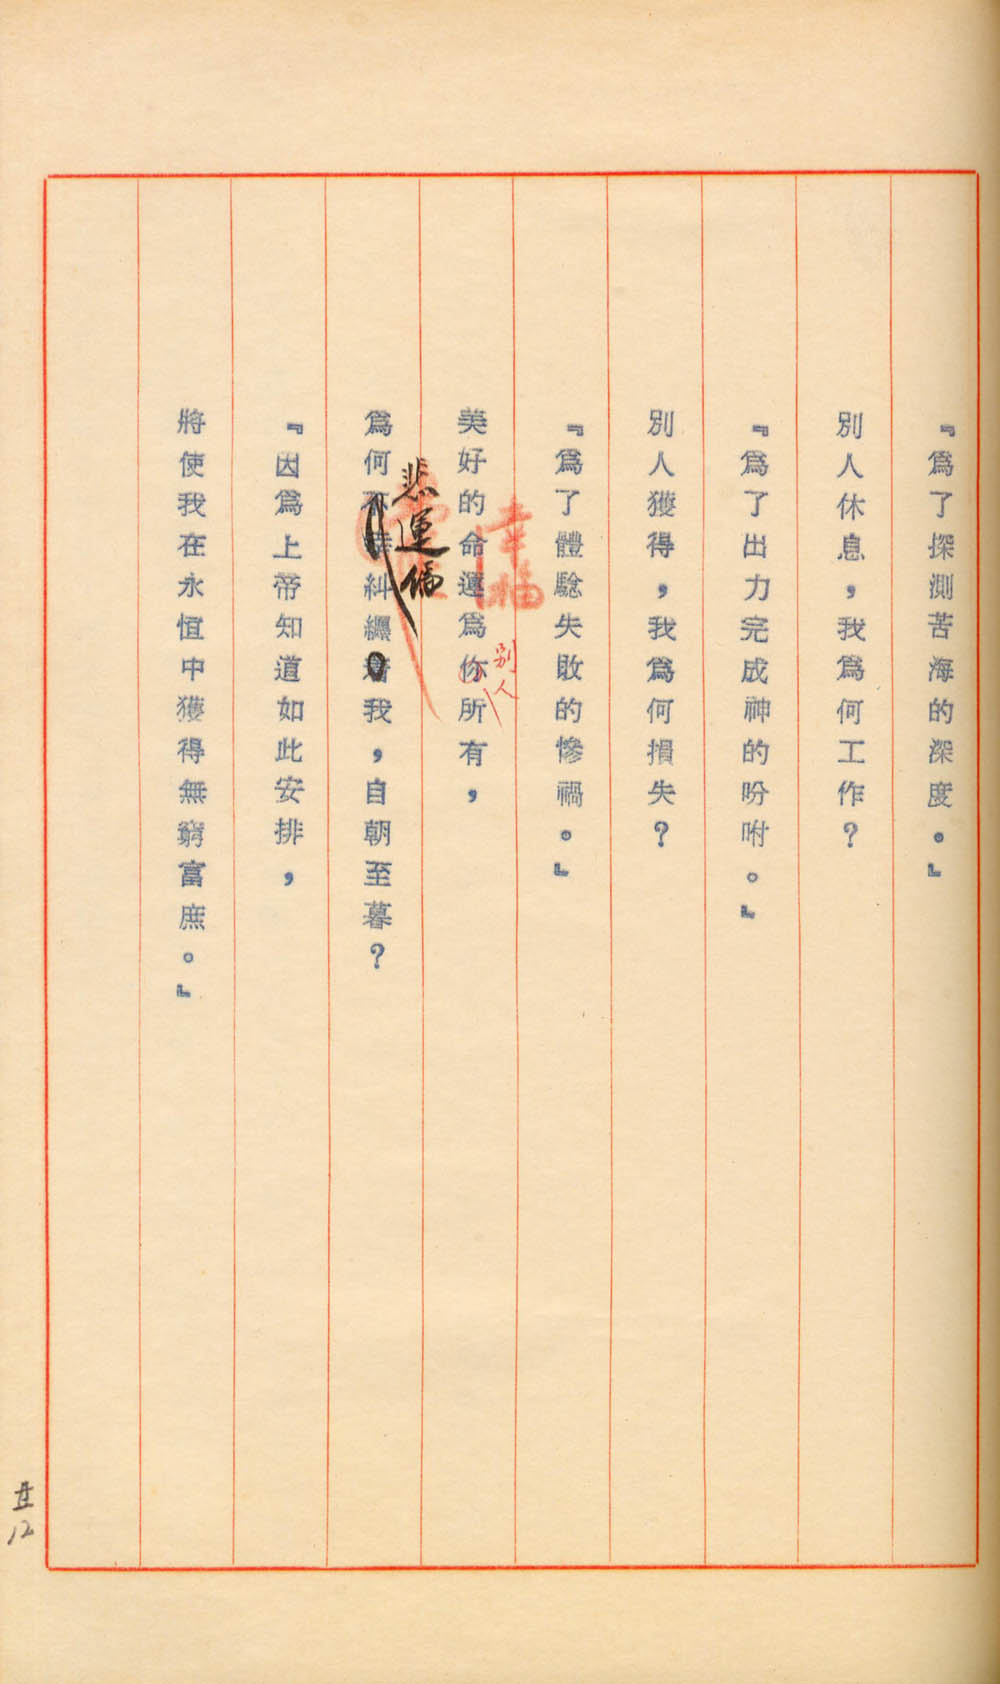 『為了探測苦海的深度。』
別人休息，我為何工作？
『為了出力完成神的吩咐。』
別人獲得，我為何損失？
『為了體驗失敗的慘禍。』
幸福
別人
美好的命運為你所有，
悲運偏
為何不幸糾纏着我，自朝至暮？
『因為上帝知道如此安排，
將使我在永恒中獲得無窮富庶。』
12